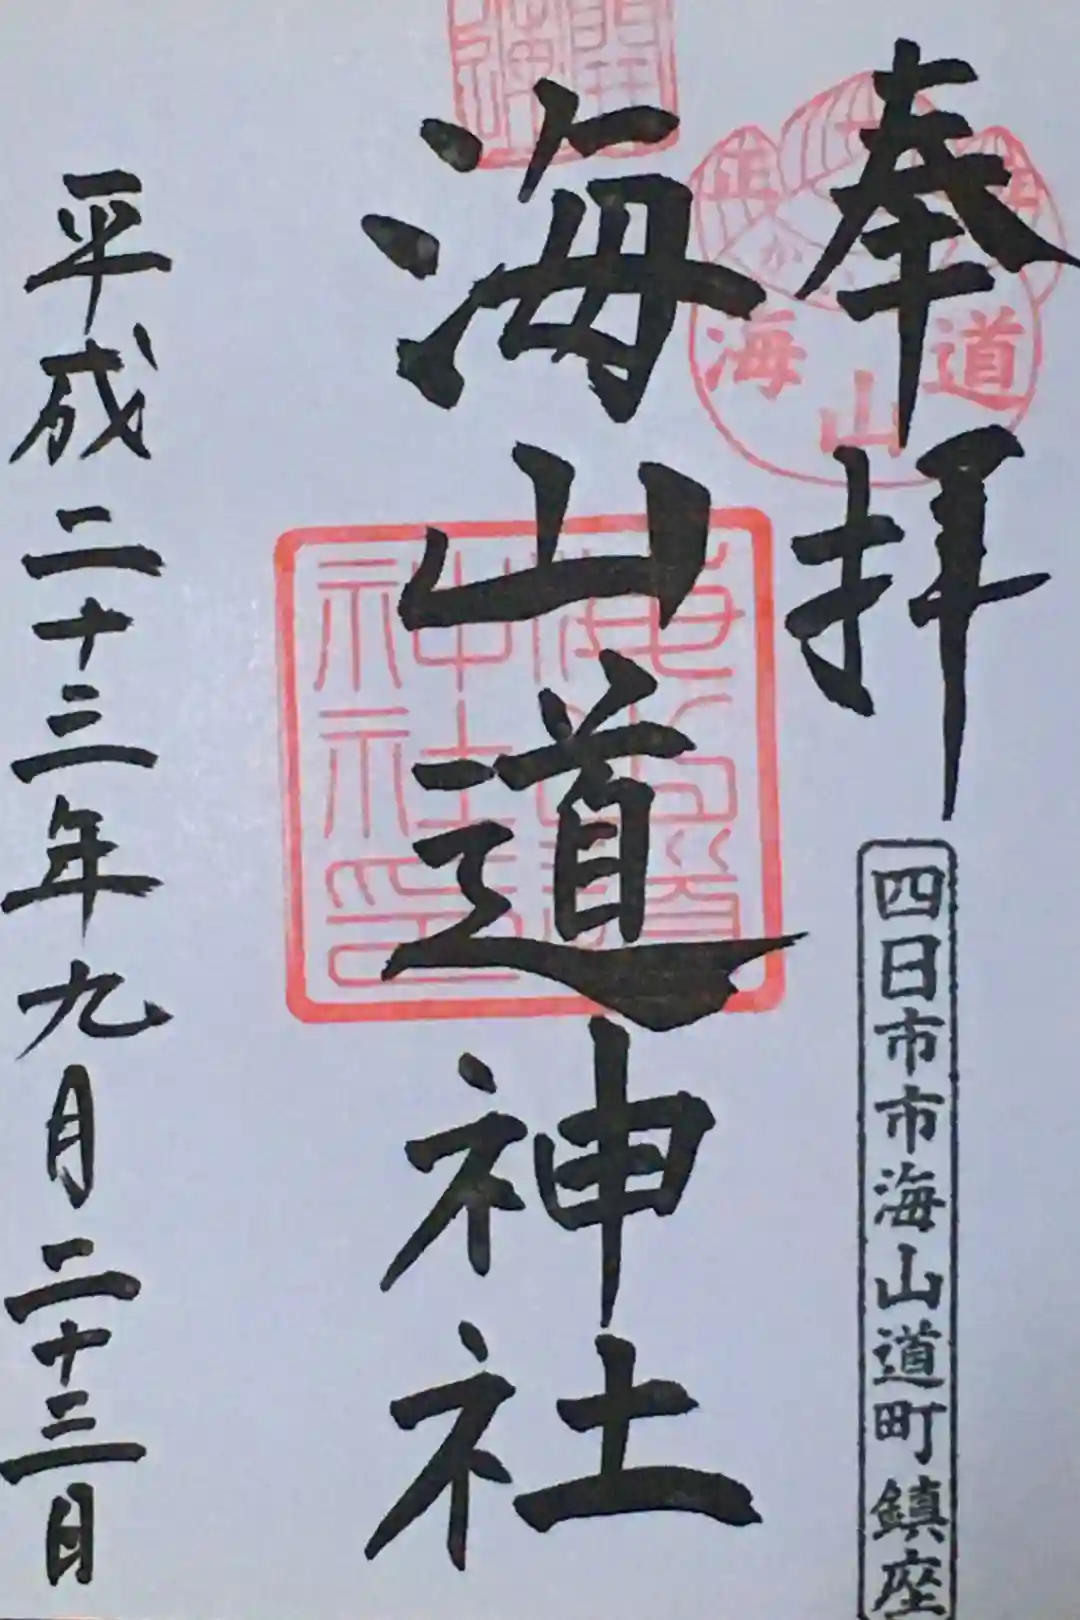 奉拝
四日市市海山道町鎮座
海山道
海山道神社
海山道神社印
平成二十三年九月二十三日